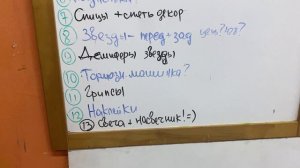 7 Спицы + снять декор
8 Звезды - перед + зад цепь?
9 Демпферы звезды
10 машинка?
11 Грипсы
12 Наклейки
13 Свеча + насвечник! =)